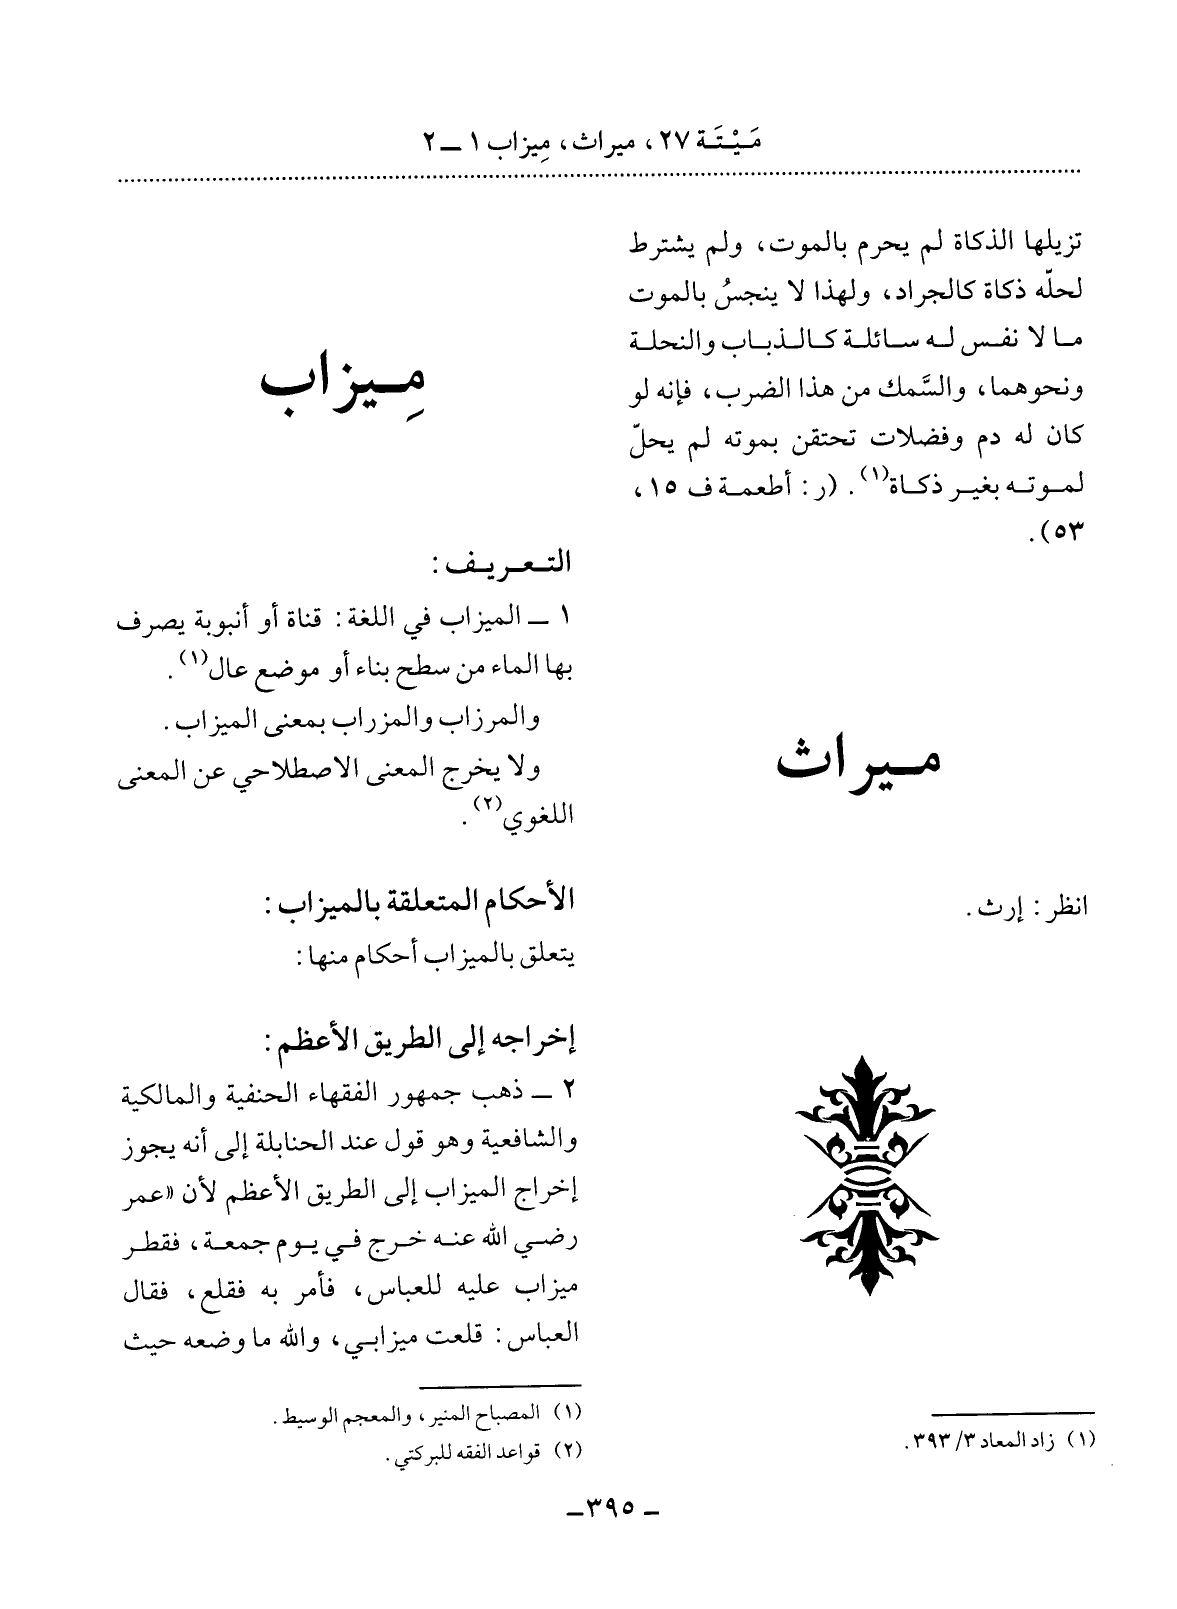 مَيْتَة ٢٧، ميراث، مِيزاب ١ ــ ٢
تزيلها الذكاة لم يحرم بالموت، ولم يشترط
لحلّه ذكاة كالجراد، ولهذا لا ينجسُ بالموت
ما لا نفس له سائلة كالذباب والنحلة
ونحوهما، والسَّمك من هذا الضرب، فإنه لو
كان له دم وفضلات تحتقن بموته لم يحلّ
لموته بغير ذكاة(١). (ر: أطعمة ف ١٥،
٥٣).
ميراث
انظر: إرث.
(١) زاد المعاد ٣/ ٣٩٣.
مِيزاب
التعريف:
١ ــ الميزاب في اللغة: قناة أو أنبوبة يصرف
بها الماء من سطح بناء أو موضع عال(١).
والمرزاب والمزراب بمعنى الميزاب.
ولا يخرج المعنى الاصطلاحي عن المعنى
اللغوي(٢).
الأحكام المتعلقة بالميزاب:
يتعلق بالميزاب أحكام منها:
إخراجه إلى الطريق الأعظم:
٢ ــ ذهب جمهور الفقهاء الحنفية والمالكية
والشافعية وهو قول عند الحنابلة إلى أنه يجوز
إخراج الميزاب إلى الطريق الأعظم لأن «عمر
رضي الله عنه خرج في يوم جمعة، فقطر
ميزاب عليه للعباس، فأمر به فقلع، فقال
العباس: قلعت ميزابي، والله ما وضعه حيث
(١) المصباح المنير، والمعجم الوسيط.
(٢) قواعد الفقه للبركتي.
ــ ٣٩٥ ــ